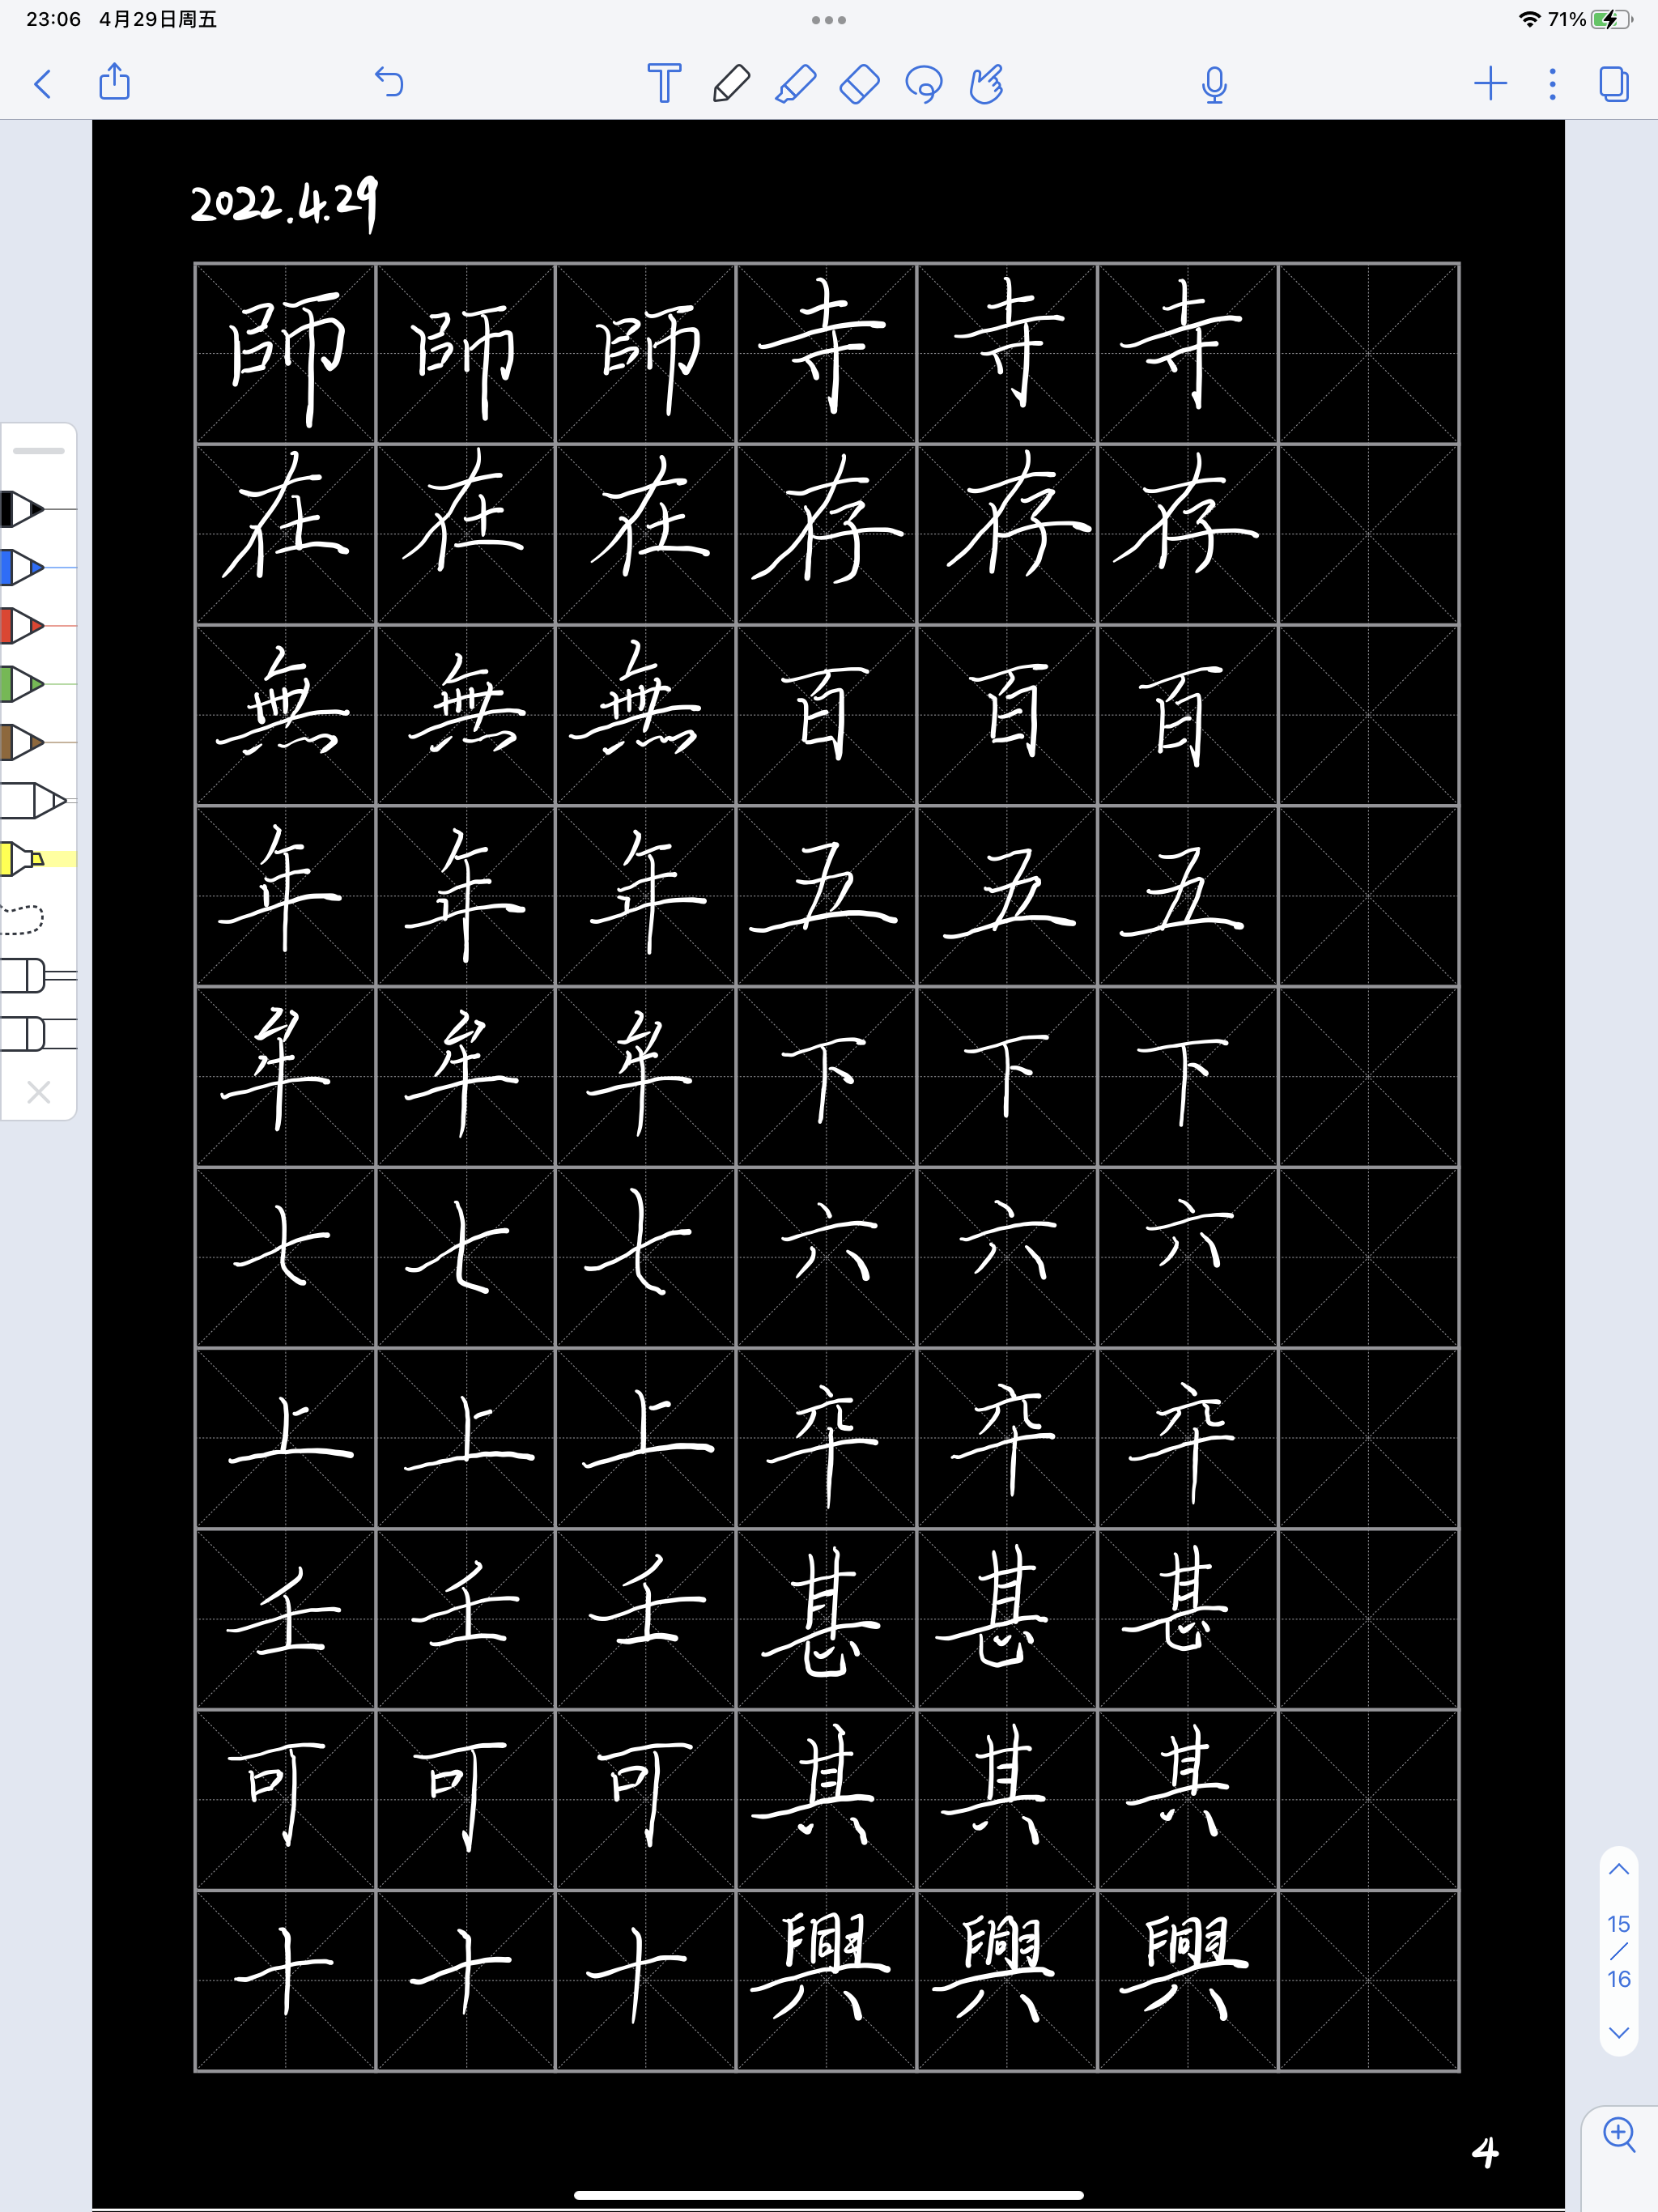 23:06 4月29日周五 71%
2022.4.29
師 師 師 寺 寺 寺
在 在 在 存 存 存
無 無 無 百 百 百
年 年 年 五 五 五
牟 牟 牟 下 下 下
七 七 七 六 六 六
上 上 上 卒 卒 卒
壬 壬 壬 甚 甚 甚
可 可 可 其 其 其
十 十 十 興 興 興
15
/
16
4